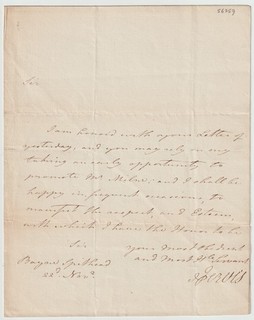 Sir
I am honor'd with your Letter of
yesterday, and you may rely on my
taking an early opportunity to
promote Mr. and I shall be
happy in frequent occasions, to
manifest the respect, and Esteem,
with which I have the Honor to be
Sir your most Obedient
and most Hble Servant
Spithead
22d Novr.